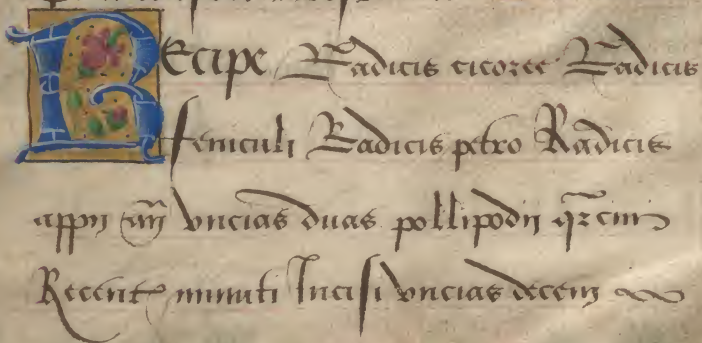 RECIPE Radicis cicoree Radicis
feniculi Radicis petro Radicis
appii añ vncias duas pollipodii
Recent minuti Incisi vncias decem